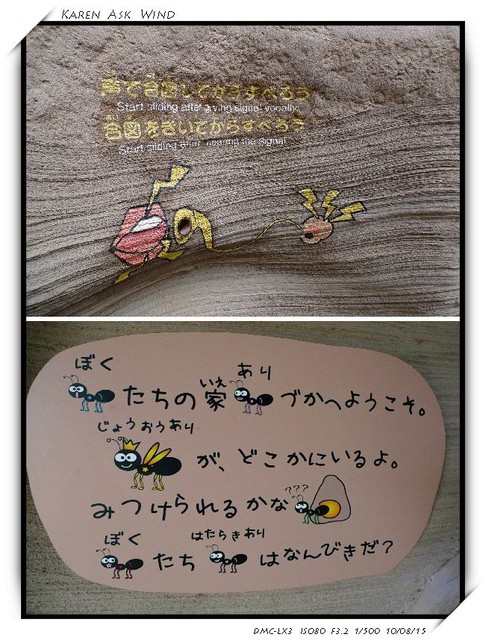 KAREN ASK WIND
声で合図してからすべろう
Start sliding after giving signal vocally.
合図をきいてからすべろう
Start sliding after hearing the signal.
ぼく いえ あり
たちの家 づかへようこそ。
じょうおうあり
が、どこかにいるよ。
???
みつけられるかな
ぼく はたらきあり
たち はなんびきだ?
DMC-LX3 ISO80 F3.2 1/500 10/08/15